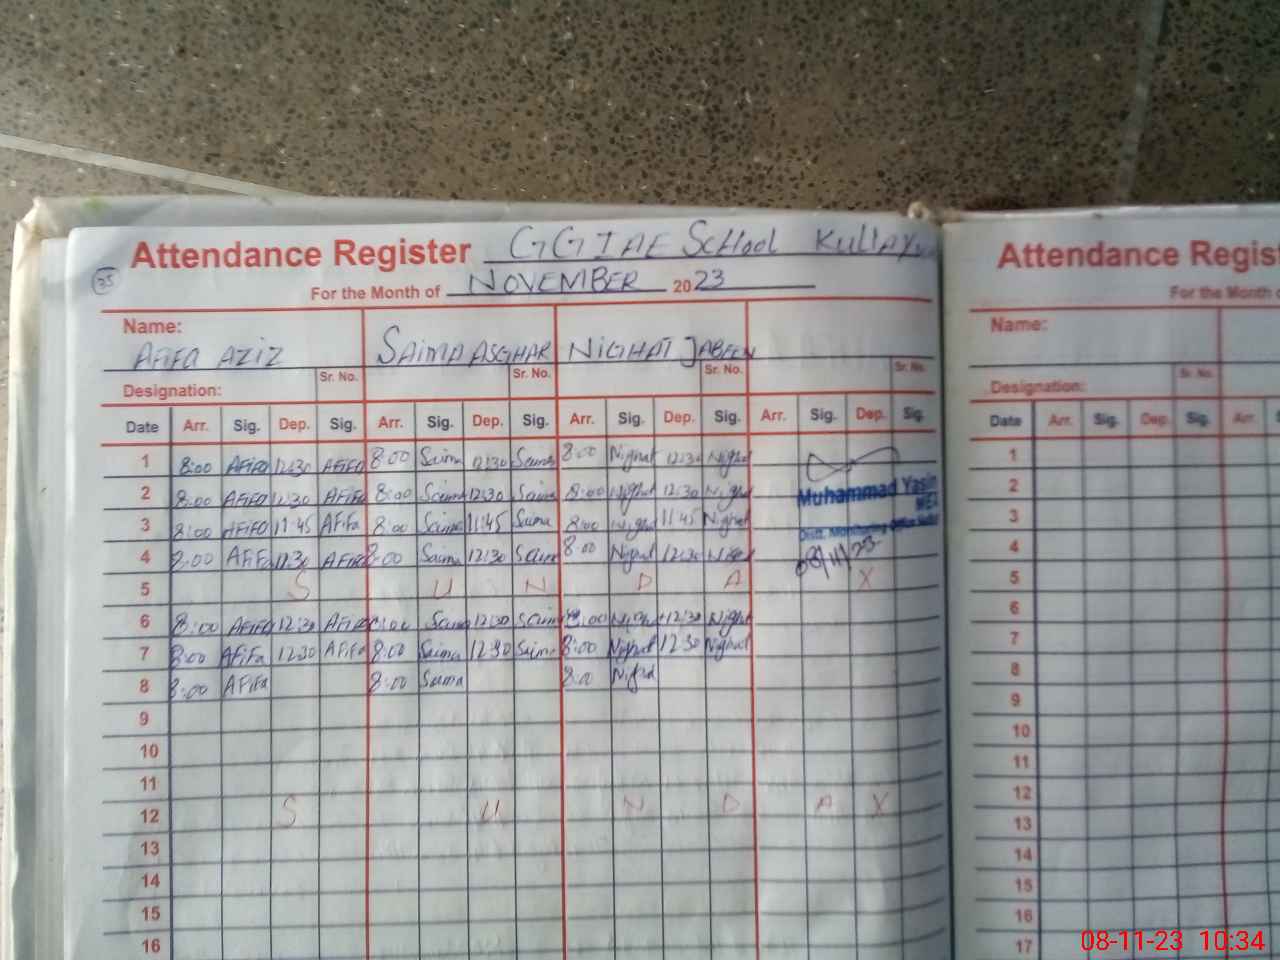 Attendance Register GGIAE School Kullay
35
For the Month of NOVEMBER 2023
Name:
AFIFA AZIZ SAIMA ASGHAR NIGHAT JABEEN
Designation: Sr. No. Sr. No. Sr. No. Sr. No.
Date Arr. Sig. Dep. Sig. Arr. Sig. Dep. Sig. Arr. Sig. Dep. Sig. Arr. Sig. Dep. Sig.
1 8:00 AFIFA 12:30 AFIFA 8:00 Saima 12:30 Saima 8:00 Nighat 12:30 Nighat
2 8:00 AFIFA 12:30 AFIFA 8:00 Saima 12:30 Saima 8:00 Nighat 12:30 Nighat
3 8:00 AFIFA 11:45 AFiFa 8:00 Saima 11:45 Saima 8:00 Nighat 11:45 Nighat
4 8:00 AFIFa 12:30 AFIFA 8:00 Saima 12:30 Saima 8:00 Nighat 12:30 Nighat
5 S U N D A X
6 8:00 AFIFA 12:30 AFIFA Saima 12:30 Saima 8:00 Nighat 12:30 Nighat
7 8:00 AFiFa 12:30 AFiFa 8:00 Saima 12:30 Saima 8:00 Nighat 12:30 Nighat
8 8:00 AFiFa 8:00 Saima 8:00 Nighat
9
10
11
12 S U N D A Y
13
14
15
16
Muhammad Yasin
MEA
Distt. Monitoring Office
08/11/23
Attendance Regist
For the Month
Name:
Designation: Sr. No.
Date Arr. Sig. Dep. Sig. Arr.
1
2
3
4
5
6
7
8
9
10
11
12
13
14
15
16
17
08-11-23 10:34